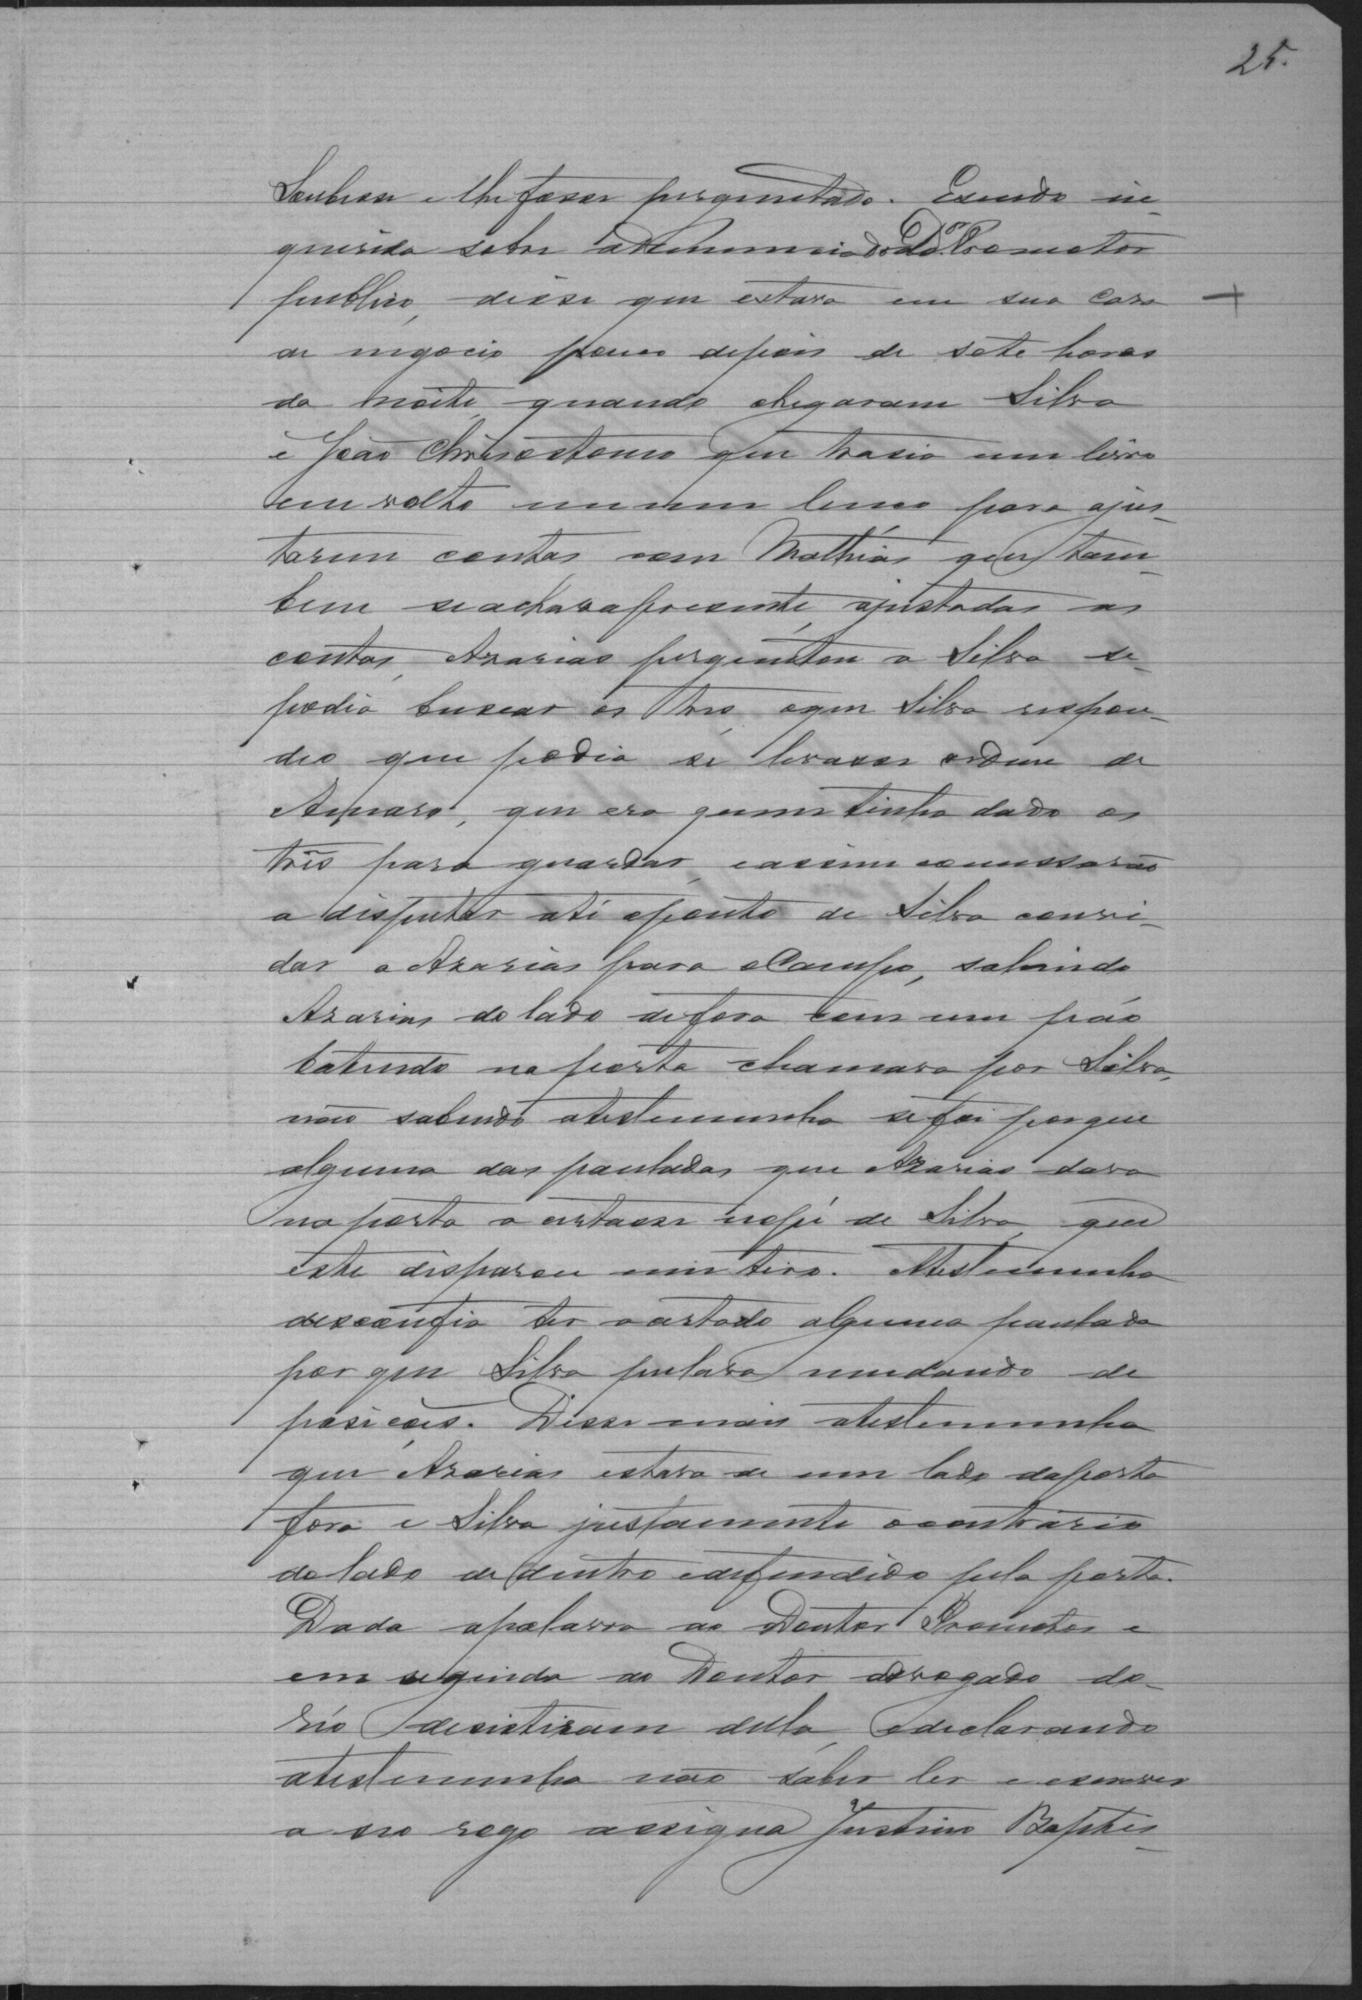 25.
Soubesse e lhe fosse perguntado. E sendo in-
querida sobre a denuncia do Dor. Promotor
publico, disse que estava em sua casa
de negocio pouco depois de sete horas
da noite, quando chegaram Silva
e João Chrisostomo que trasia um livro
em volto num lenço para ajus-
tarem contas com Mathias que tam-
bem se achava presente, ajustadas as
contas, Azarias perguntou a Silva se
podia buscar os tres, o que Silva respon-
deo que podia se levasse ordem de
Amaro, que era quem tinha dado os
três para guardar, e assim comessarão
a disputar até o ponto de Silva convi-
dar a Azarias para o Campo, sahindo
Azarias do lado de fora com um páo
batendo na porta chamava por Silva,
não sabendo a testemunha se foi porque
alguma das pauladas que Azarias dava
na porta a certasse no pé de Silva, que
este disparou um tiro. A testemunha
desconfia ter a certado alguma paulada
por que Silva pulava mudando de
posições. Disse mais a testemunha
que Azarias estava de um lado da porta
fora e Silva justamente o contrario
do lado de dentro e defendido pela porta.
Dada a palavra ao Doutor Promotor e
em seguida ao Doutor advogado do
réo desistiram della, e declarando
a testemunha não saber ler e escrever
a seo rogo assigna Justino Baptis-